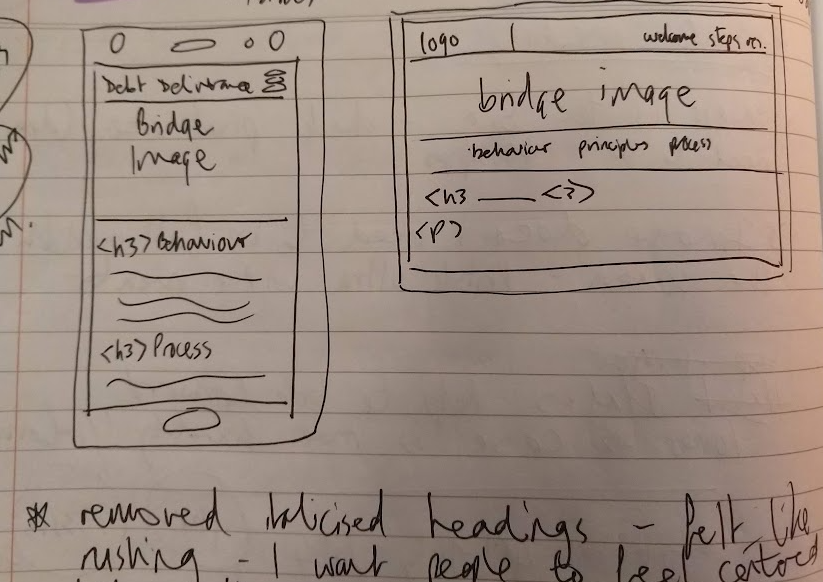 Debt Deliverance
Bridge
Image
<h3> Behaviour
<h3> Process
logo
welcome steps
bridge image
behaviour principles process
<h3
<p>
* removed italicised headings - felt like
rushing - I want people to feel centered